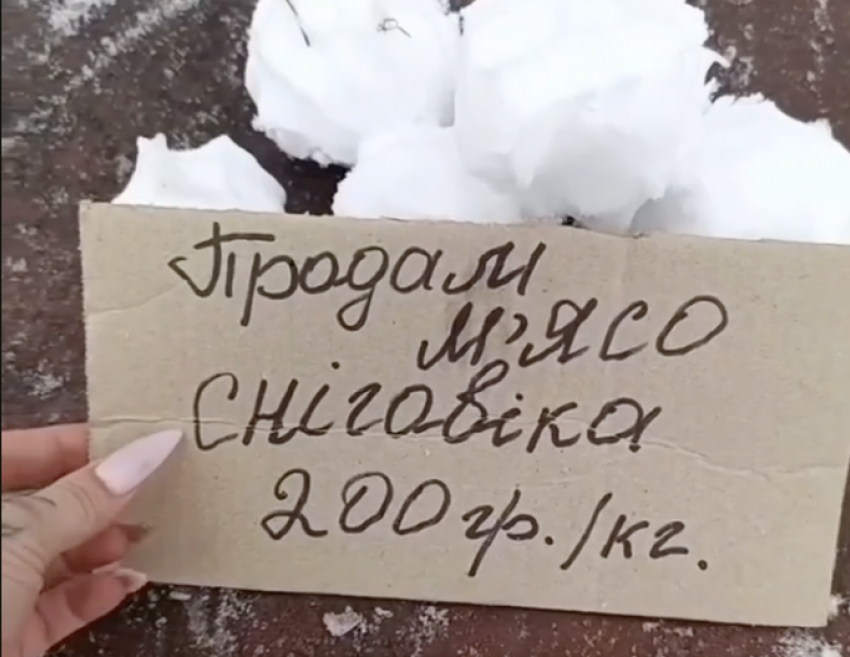 Продам
м'ясо
сніговіка
200 гр./кг.